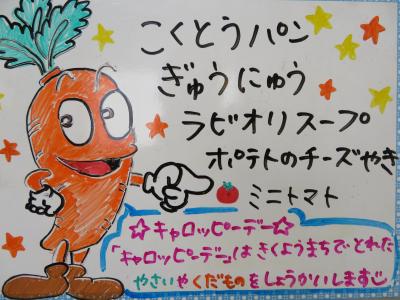 こくとうパン
ぎゅうにゅう
ラビオリスープ
ポテトのチーズやき
ミニトマト
☆キャロッピーデー☆
「キャロッピーデー」はきくようまちでとれた
やさいやくだものをしょうかいします